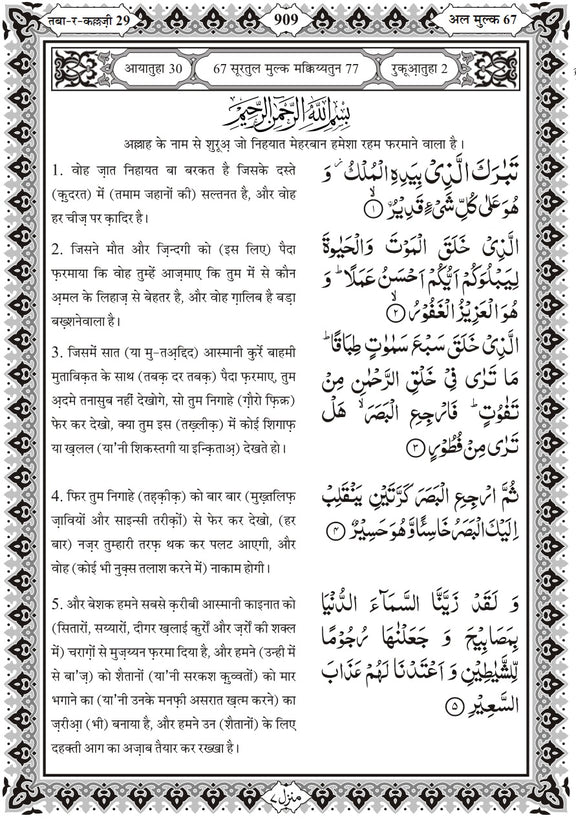 तबा-र-कल्लज़ी 29
909
अल मुल्क 67
आयातुहा 30
67 सूरतुल मुल्क मक्किय्यतुन 77
रुकूआ़तुहा 2
بِسْمِ اللّٰهِ الرَّحْمٰنِ الرَّحِيْمِ
अल्लाह के नाम से शुरूअ़ जो निहयात मेहरबान हमेशा रहम फरमाने वाला है।
1. वोह ज़ात निहायत बा बरकत है जिसके दस्ते
(कु़दरत) में (तमाम जहानों की) सल्तनत है, और वोह
हर चीज़ पर क़ादिर है।
تَبٰرَكَ الَّذِيْ بِيَدِهِ الْمُلْكُ ؗ وَ
هُوَ عَلٰى كُلِّ شَيْءٍ قَدِيْرُ ۙ﴿۱﴾
2. जिसने मौत और ज़िन्दगी को (इस लिए) पैदा
फ़रमाया कि वोह तुम्हें आज़माए कि तुम में से कौन
अ़मल के लिहाज़ से बेहतर है, और वोह ग़ालिब है बड़ा
बख़्शनेवाला है।
الَّذِيْ خَلَقَ الْمَوْتَ وَالْحَيٰوةَ
لِيَبْلُوَكُمْ اَيُّكُمْ اَحْسَنُ عَمَلًا ؕ وَ
هُوَ الْعَزِيْزُ الْغَفُوْرُ ۙ﴿۲﴾
3. जिसमें सात (या मु-तअ़द्दिद) आस्मानी कुर्रे बाहमी
मुताबिक़त के साथ (तबक़ दर तबक़) पैदा फ़रमाए, तुम
अ़दमे तनासुब नहीं देखोगे, सो तुम निगाहे (ग़ौरो फ़िक्र)
फेर कर देखो, क्या तुम इस (तख़्लीक़) में कोई शिगाफ़
या ख़लल (या'नी शिकस्तगी या इन्क़िताअ़) देखते हो।
الَّذِيْ خَلَقَ سَبْعَ سَمٰوٰتٍ طِبَاقًا ؕ
مَا تَرٰى فِيْ خَلْقِ الرَّحْمٰنِ مِنْ
تَفٰوُتٍ ؕ فَارْجِعِ الْبَصَرَ ۙ هَلْ
تَرٰى مِنْ فُطُوْرٍ ﴿۳﴾
4. फिर तुम निगाहे (तह़क़ीक़) को बार बार (मुख़्तलिफ़
ज़ावियों और साइन्सी तरीक़ों) से फेर कर देखो, (हर
बार) नज़र तुम्हारी तरफ़ थक कर पलट आएगी, और
वोह (कोई भी नुक़्स तलाश करने में) नाकाम होगी।
ثُمَّ ارْجِعِ الْبَصَرَ كَرَّتَيْنِ يَنْقَلِبْ
اِلَيْكَ الْبَصَرُ خَاسِئًا وَّ هُوَ حَسِيْرٌ ﴿۴﴾
5. और बेशक हमने सबसे क़रीबी आस्मानी काइनात को
(सितारों, सय्यारों, दीगर ख़लाई कुर्रों और ज़र्रों की शक्ल
में) चराग़ों से मुज़य्यन फ़रमा दिया है, और हमने (उन्ही में
से बा'ज़) को शैतानों (या'नी सरकश कु़व्वतों) को मार
भगाने का (या'नी उनके मनफ़ी असरात ख़त्म करने) का
ज़रीआ़ (भी) बनाया है, और हमने उन (शैतानों) के लिए
दहक्ती आग का अज़ाब तैयार कर रख्खा है।
وَ لَقَدْ زَيَّنَّا السَّمَآءَ الدُّنْيَا
بِمَصَابِيْحَ وَ جَعَلْنٰهَا رُجُوْمًا
لِّلشَّيٰطِيْنِ وَ اَعْتَدْنَا لَهُمْ عَذَابَ
السَّعِيْرِ ﴿۵﴾
منزل ۷